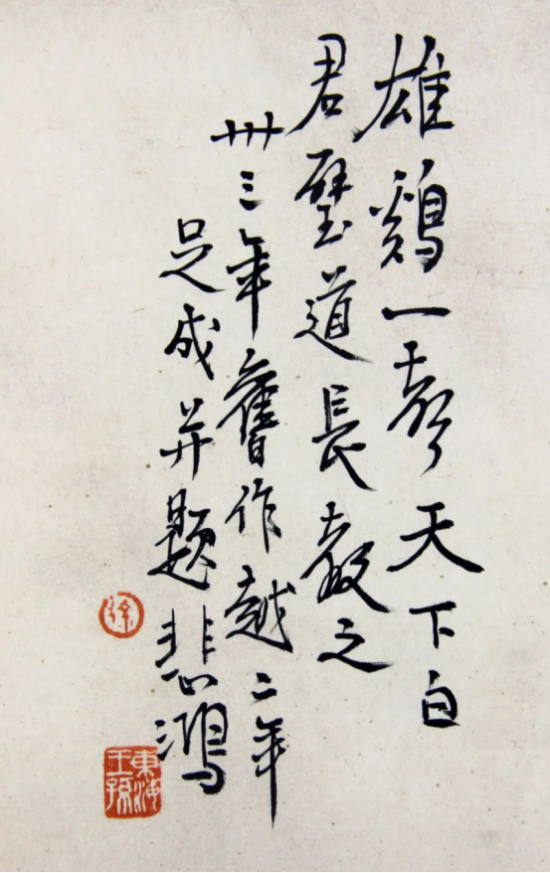 雄鷄一聲天下白
君壁道長教之
卅三年舊作越二年
足成并題悲鴻
徐
東海王孫